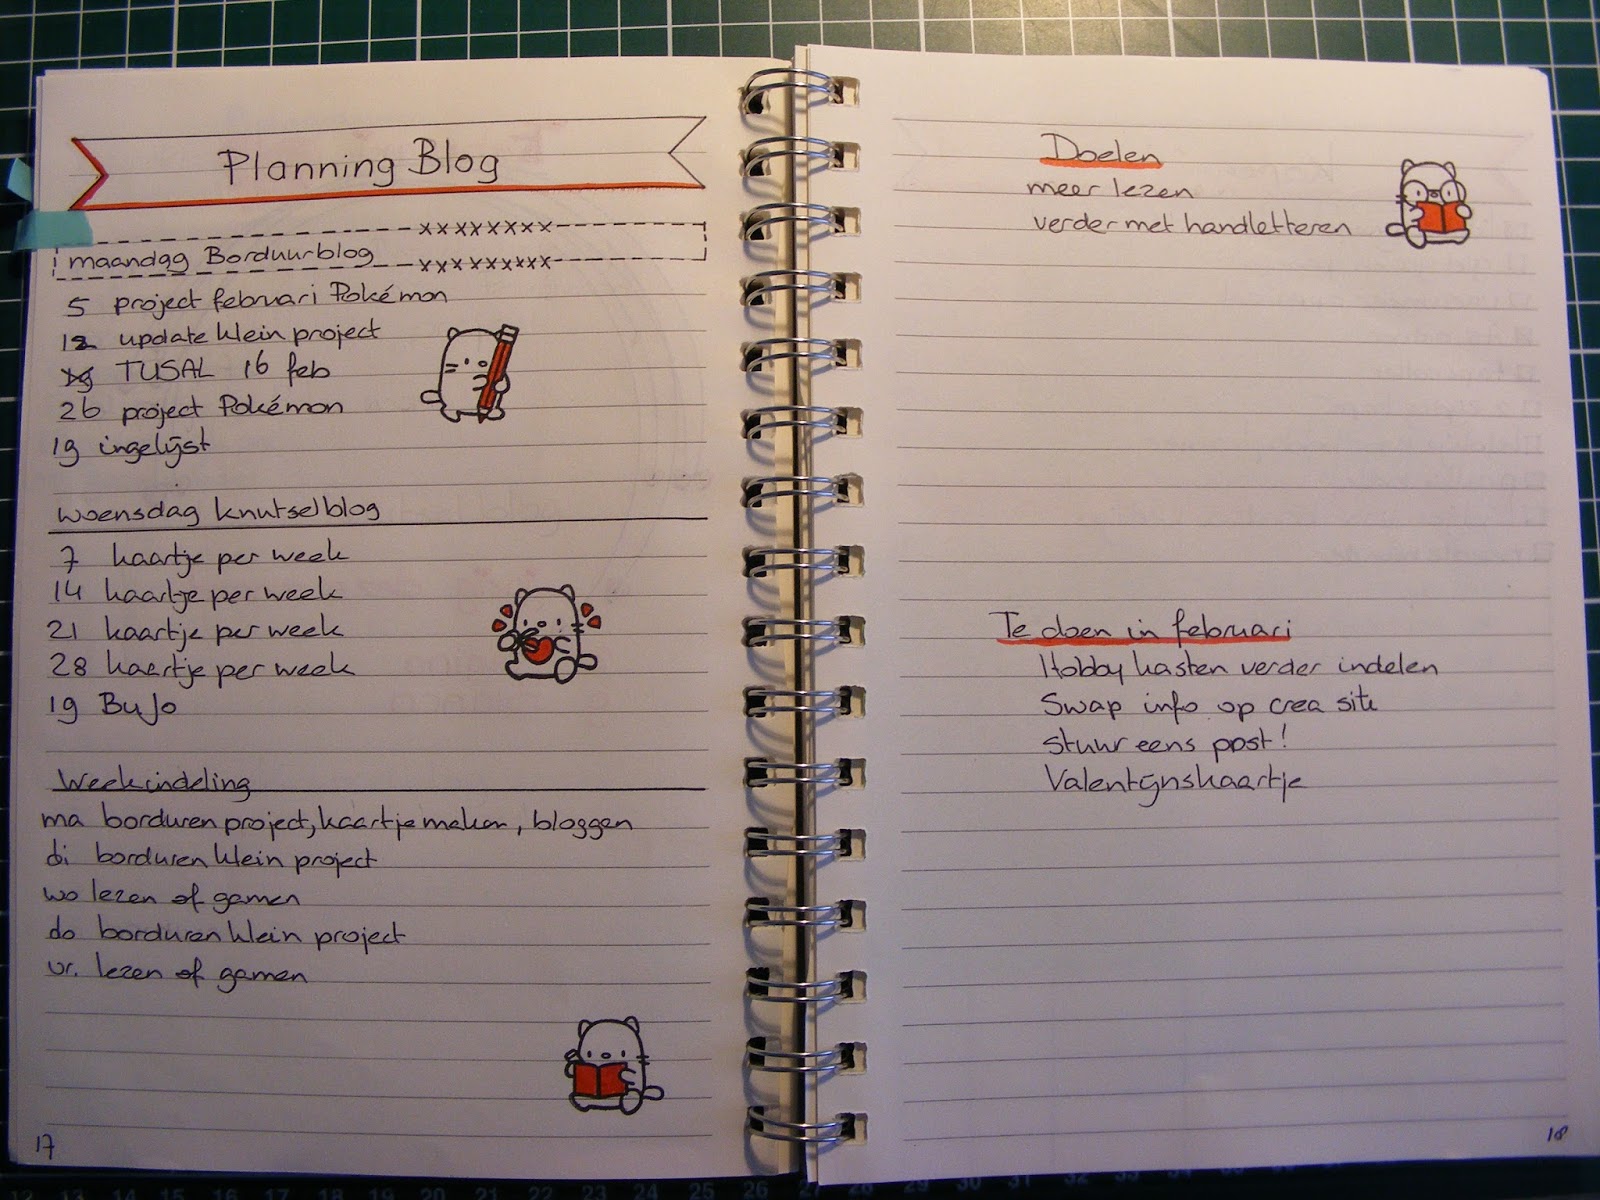 Planning Blog
xxxxxxxx
maandag Borduurblog
xxxxxxxxx
5 project februari Pokémon
12 update klein project
TUSAL 16 feb
26 project Pokémon
19 ingelijst
woensdag knutselblog
7 kaartje per week
14 kaartje per week
21 kaartje per week
28 kaartje per week
19 BuJo
Weekindeling
ma borduren project, kaartje maken, bloggen
di borduren klein project
wo lezen of gamen
do borduren klein project
vr. lezen of gamen
17
Doelen
meer lezen
verder met handletteren
Te doen in februari
Hobby kasten verder indelen
Swap info op crea site
Stuur eens post!
Valentijnskaartje
18
12 13 14 15 16 17 18 19 20 21 22 23 24 25 26 27 28 29 30 31 32 33 34 35